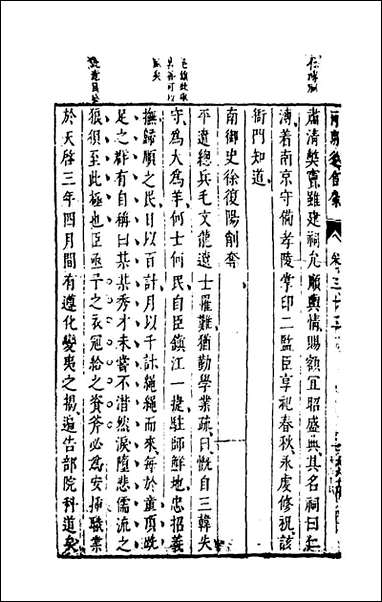 肅清獎竇雖建祠允順輿情賜額宜昭盛典其名祠曰仁
溥着南京守備孝陵掌印二監臣享祀春秋永虔修祝該
衙門知道
南御史徐復陽削奪
平遼總兵毛文龍遼士罹難猶勤學業疏曰慨自三韓失
守為犬為羊何士何民自臣鎮江一捷駐師鮮地忠招義
撫歸順之民日以百計月以千計繩繩而來每於童頂跣
足之群有自稱曰某某秀才未嘗不潸然淚墮悲儒流之
狼狽至此極也臣亟予之衣冠給之資斧必為安插職業
於天啓三年四月間有遵化變夷之揭遍告部院科道矣